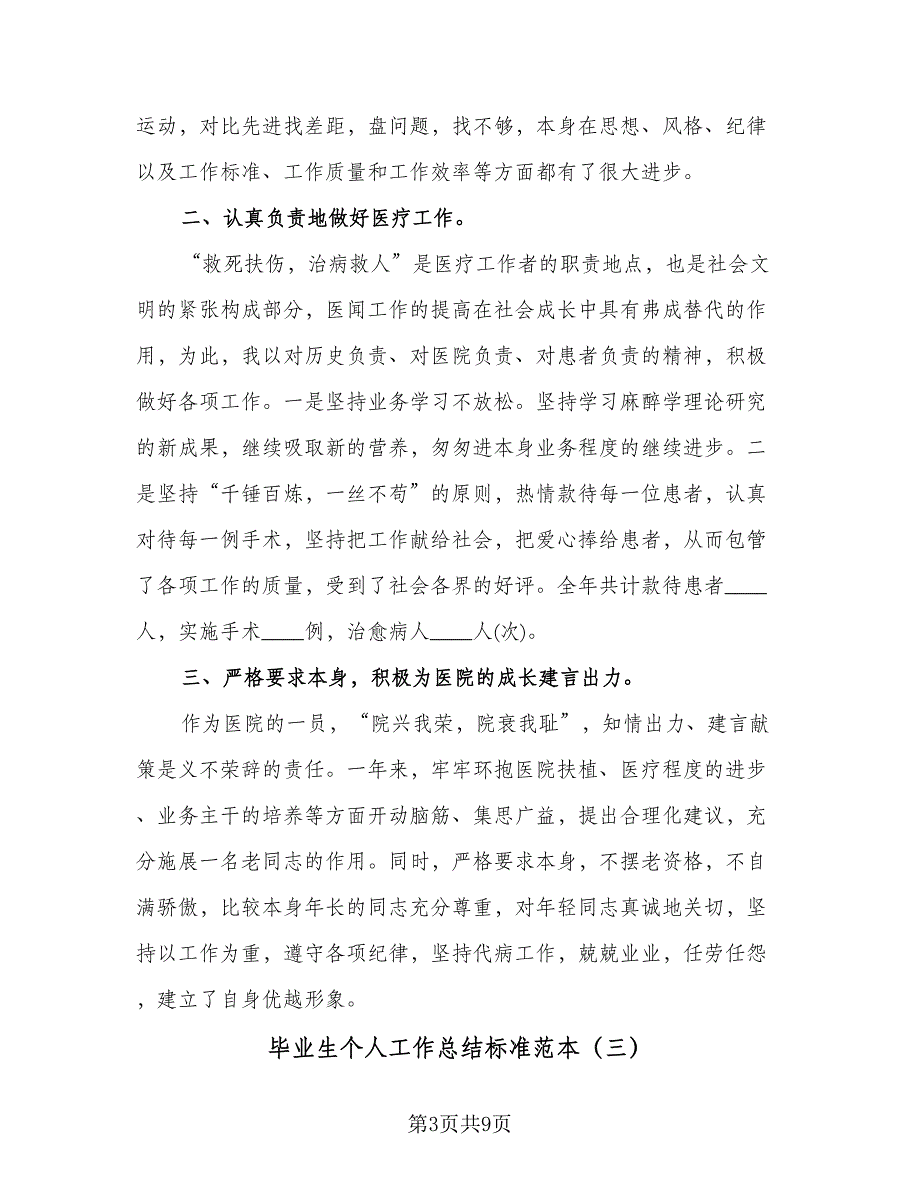 运动，对比先进找差距，盘问题，找不够，本身在思想、风格、纪律
以及工作标准、工作质量和工作效率等方面都有了很大进步。
二、认真负责地做好医疗工作。
“救死扶伤，治病救人”是医疗工作者的职责地点，也是社会文
明的紧张构成部分，医闻工作的提高在社会成长中具有弗成替代的作
用，为此，我以对历史负责、对医院负责、对患者负责的精神，积极
做好各项工作。一是坚持业务学习不放松。坚持学习麻醉学理论研究
的新成果，继续吸取新的营养，匆匆进本身业务程度的继续进步。二
是坚持“千锤百炼，一丝不苟”的原则，热情款待每一位患者，认真
对待每一例手术，坚持把工作献给社会，把爱心捧给患者，从而包管
了各项工作的质量，受到了社会各界的好评。全年共计款待患者____
人，实施手术____例，治愈病人____人(次)。
三、严格要求本身，积极为医院的成长建言出力。
作为医院的一员，“院兴我荣，院衰我耻”，知情出力、建言献
策是义不荣辞的责任。一年来，牢牢环抱医院扶植、医疗程度的进步
、业务主干的培养等方面开动脑筋、集思广益，提出合理化建议，充
分施展一名老同志的作用。同时，严格要求本身，不摆老资格，不自
满骄傲，比较本身年长的同志充分尊重，对年轻同志真诚地关切，坚
持以工作为重，遵守各项纪律，坚持代病工作，兢兢业业，任劳任怨
，建立了自身优越形象。
毕业生个人工作总结标准范本（三）
第3页共9页